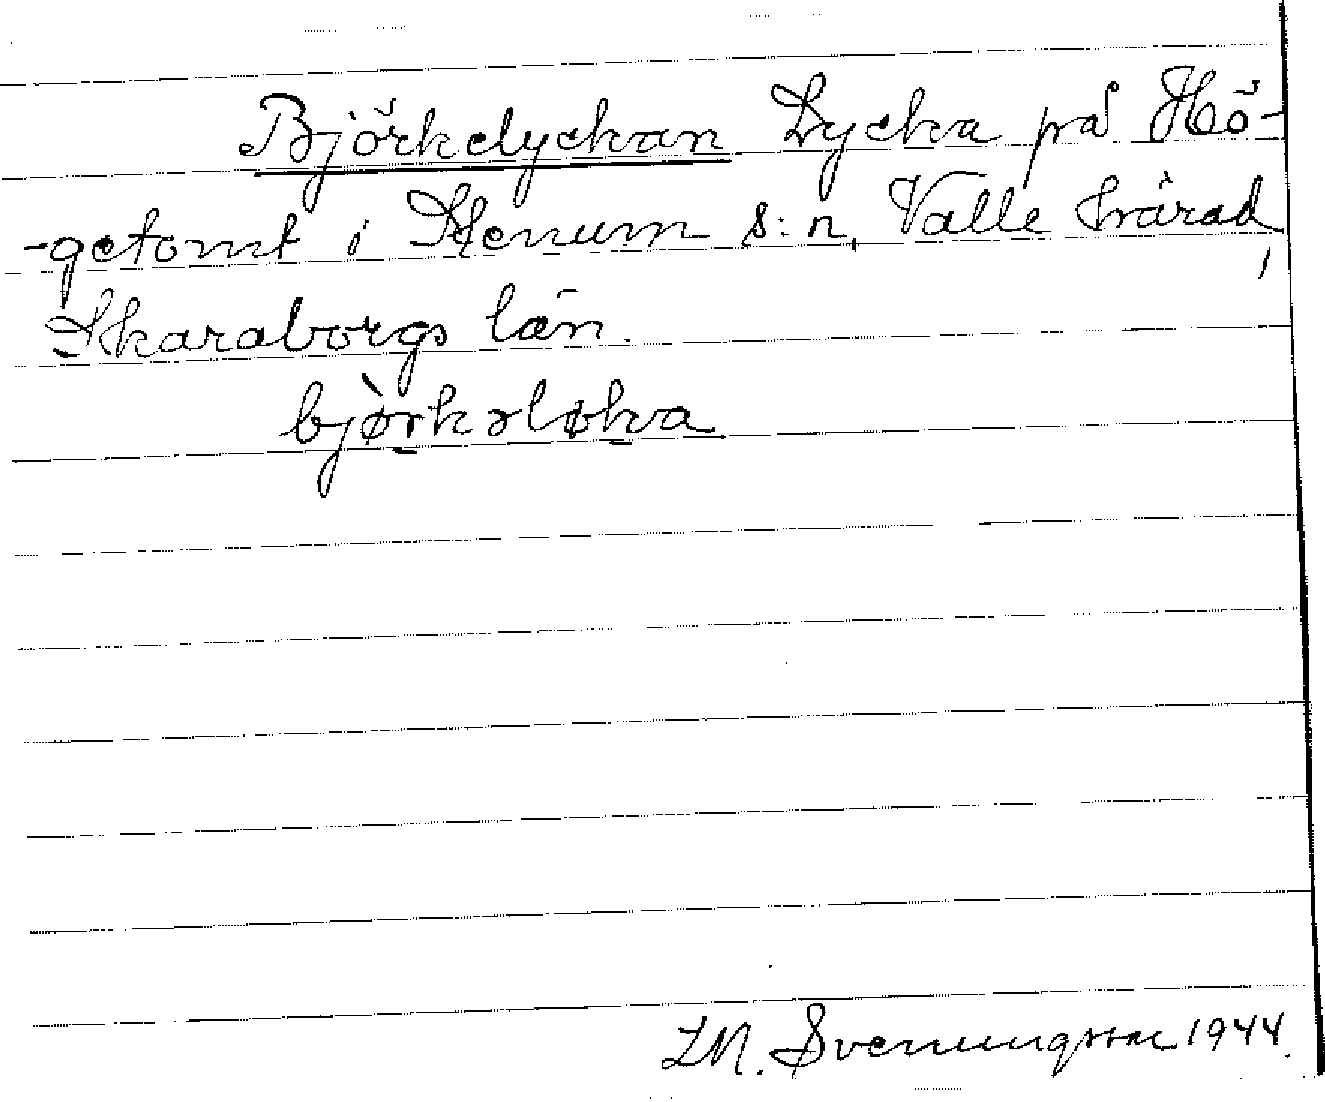 Björkelyckan Lycka på Hö-
-getomt i Stenum s:n, Valle härad,
Skaraborgs län.
bjòrkəløka
L.M. Svenungsson 1944.